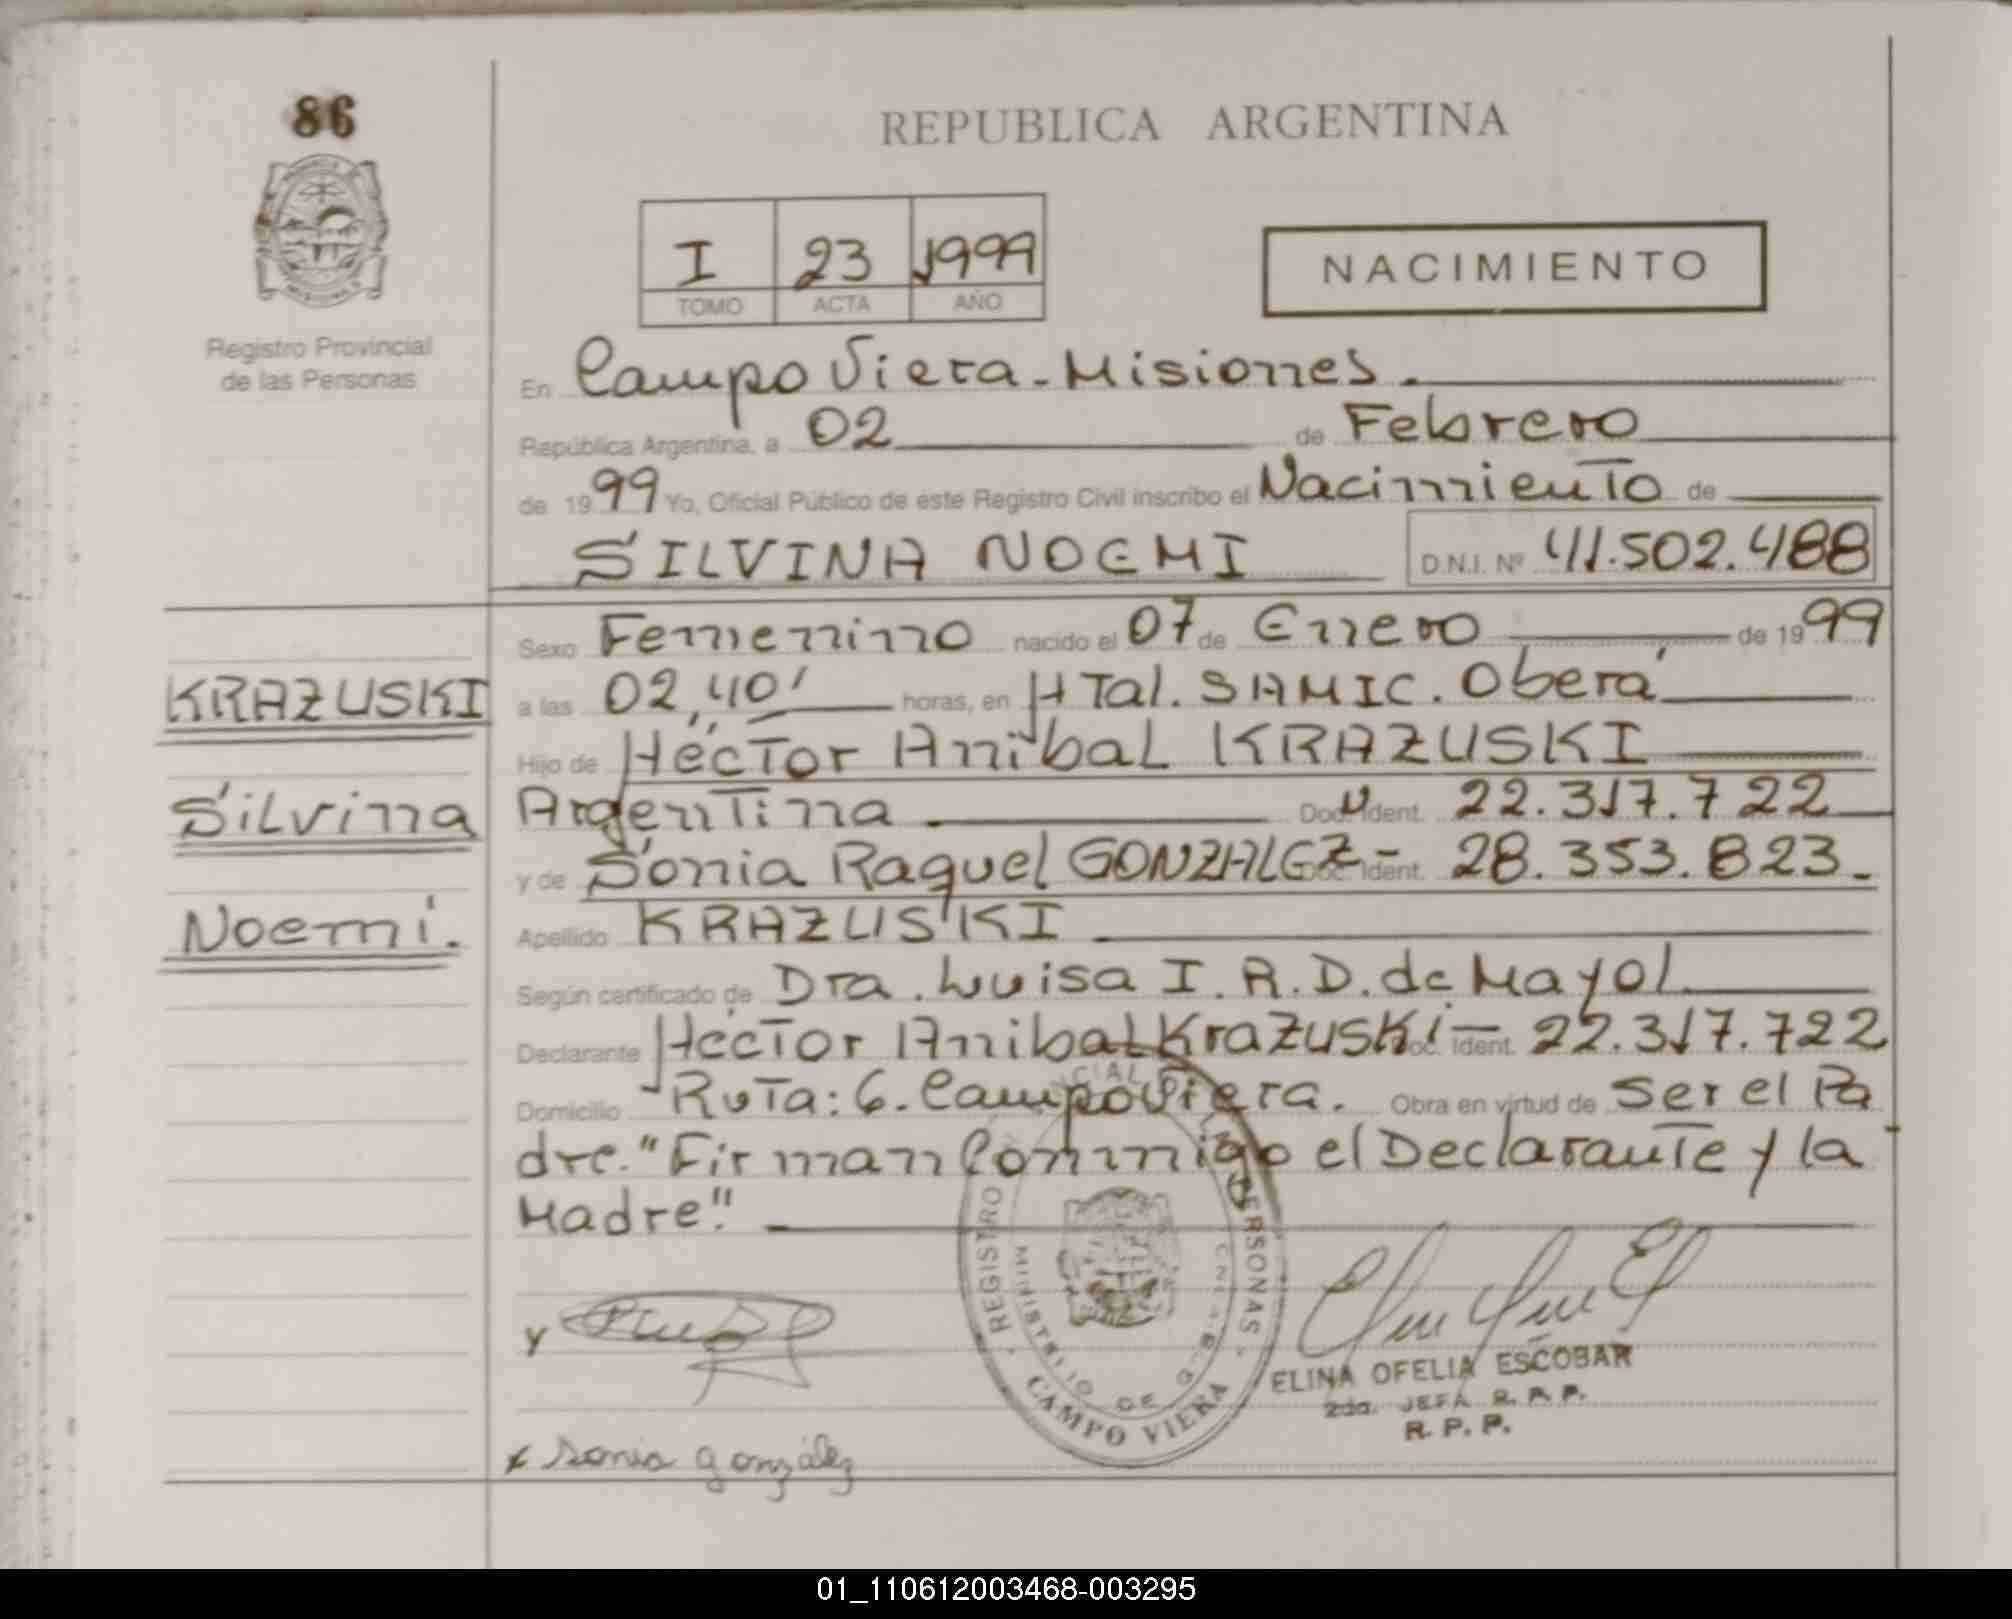 86
REPUBLICA ARGENTINA
I 23 1999
TOMO ACTA AÑO
NACIMIENTO
Registro Provincial
de las Personas
En Campo Viera - Misiones.
República Argentina, a 02 de Febrero
de 1999 Yo, Oficial Público de este Registro Civil inscribo el Nacimiento de
SILVINA NOEMI D.N.I. Nº 41.502.488
Sexo Femenino nacido el 07 de Enero de 1999
KRAZUSKI
a las 02,40' horas, en HTal. SAMIC. Oberá
Hijo de Héctor Anibal KRAZUSKI
Silvina
Argentina Doc. Ident. 22.317.722
y de Sonia Raquel GONZALEZ - Doc. Ident. 28.353.823.
Noemi.
Apellido KRAZUSKI
Según certificado de Dra. Luisa I. R. D. de Mayol
Declarante Héctor Anibal Krazuski - Doc. Ident. 22.317.722
Domicilio Ruta: 6. Campo Viera. Obra en virtud de Ser el Pa
dre. "Firman Conmigo el Declarante y la
Madre."
REGISTRO PERSONAS
MINISTERIO DE
CAMPO VIERA
y
ELINA OFELIA ESCOBAR
2da. JEFA R. P. P.
R. P. P.
x Sonia González
01_110612003468-003295